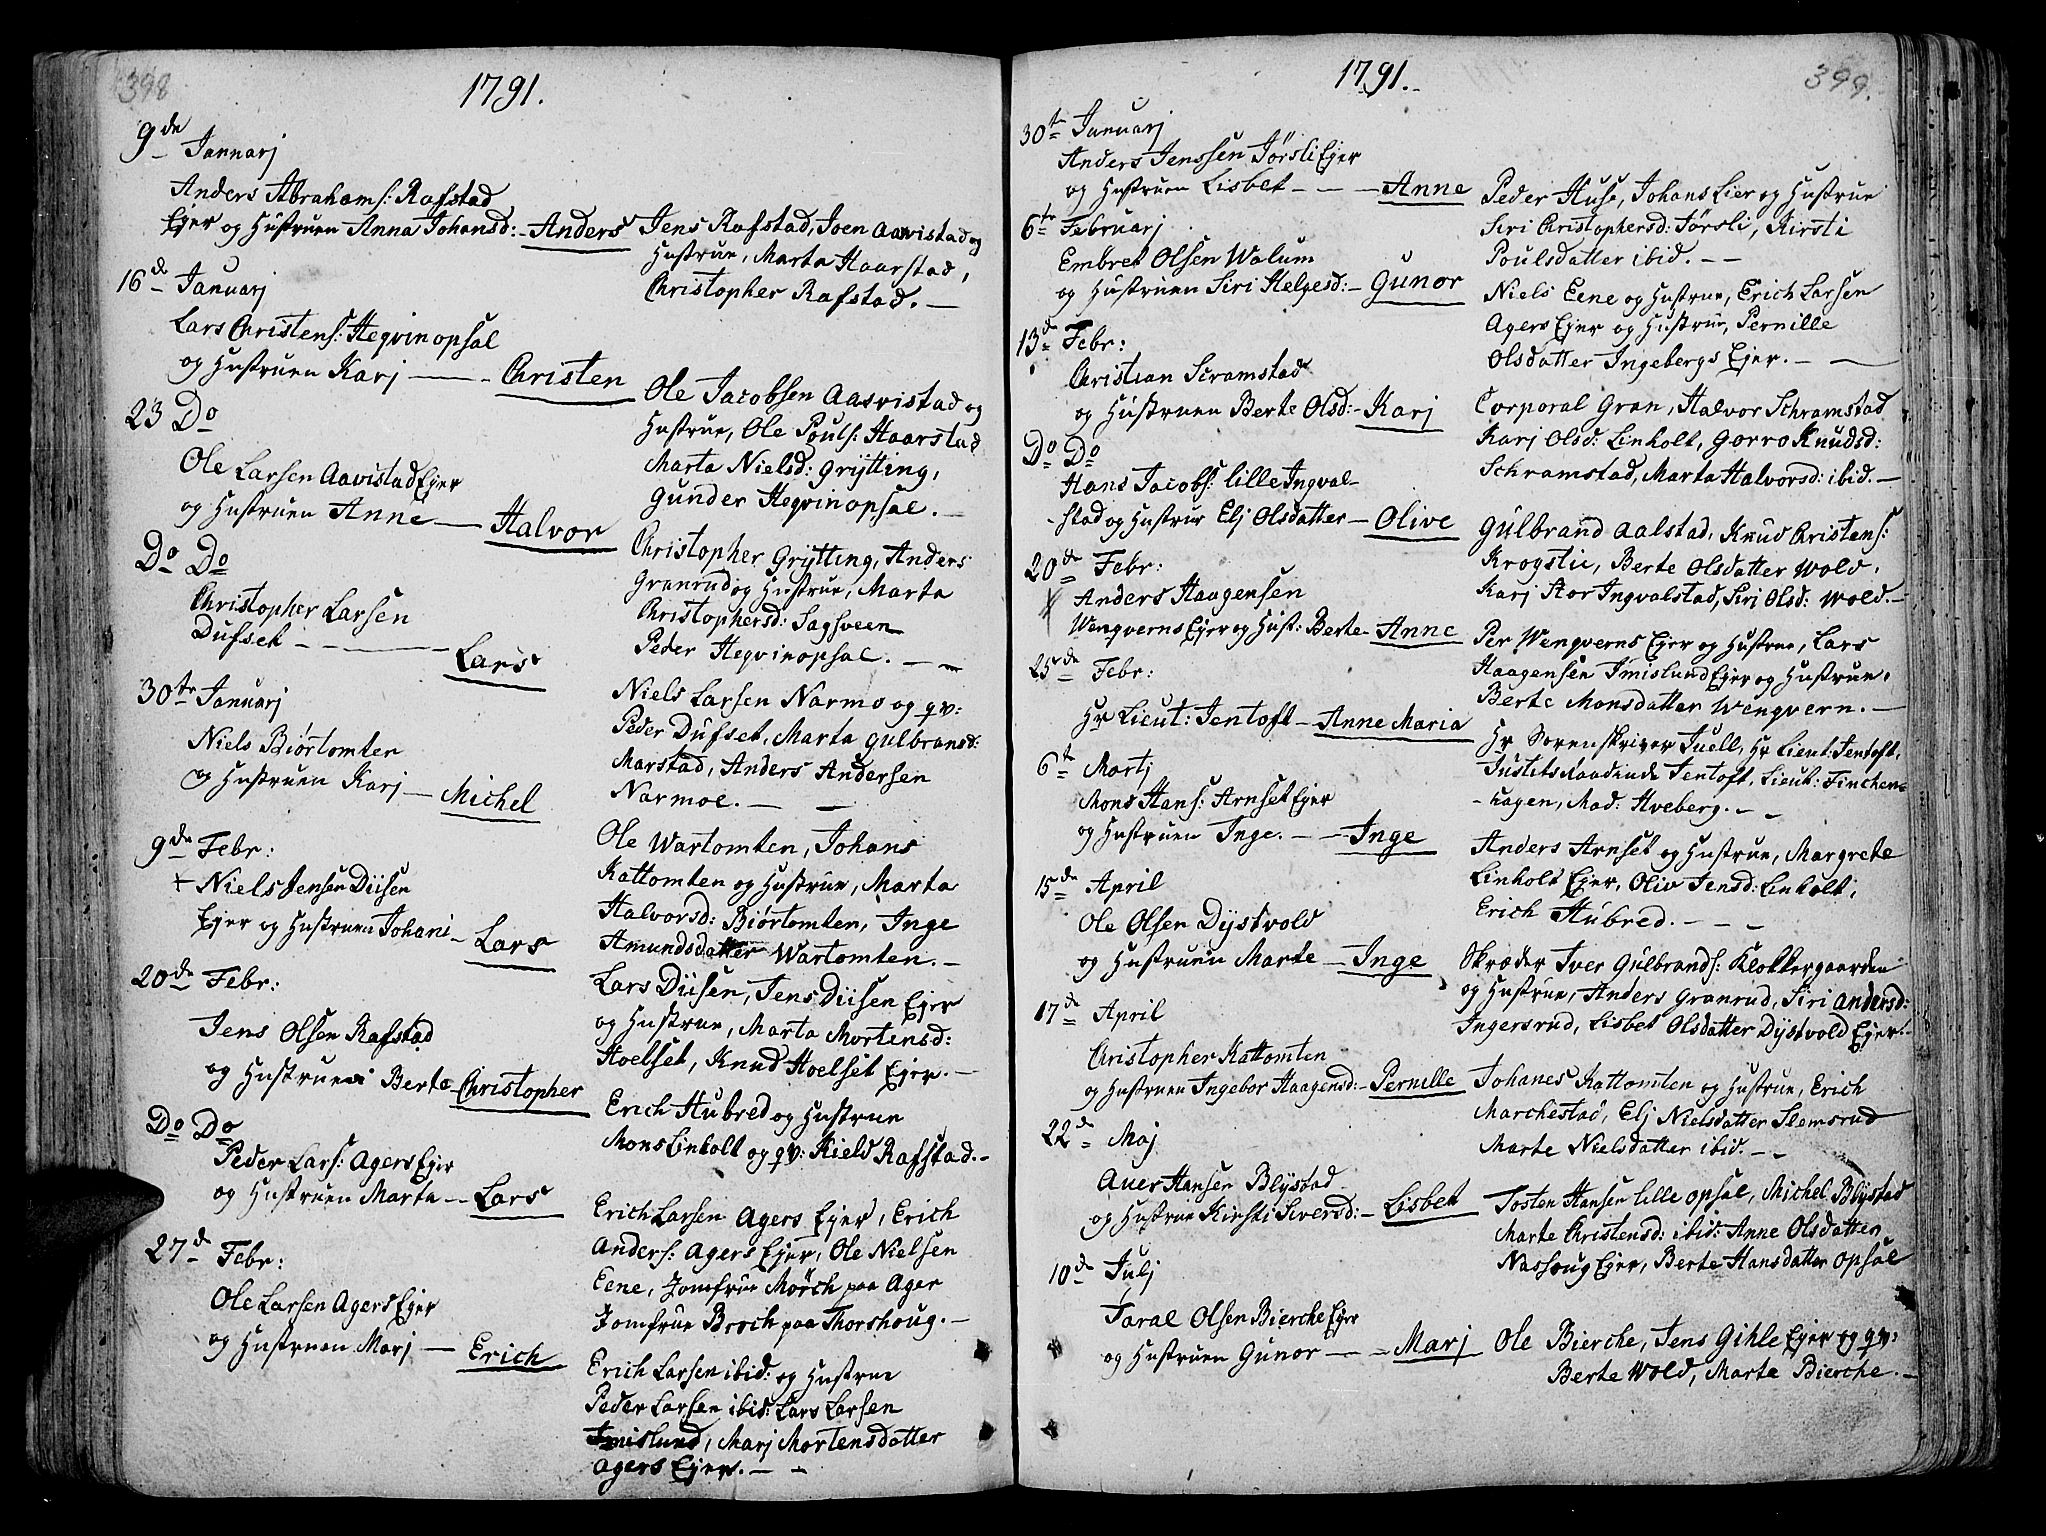 398
1791.
9de Januarj
Anders Abrahams: Rafstad
Ejer og Hustruen Anna Johansd: - Anders
Jens Rafstad, Joen Aavistad og
Hustrue, Marta Haarstad,
Christopher Rafstad. -
16de Januarj
Lars Christens: Hegvinopsal
og Hustruen Karj - Christen
Ole Jacobsen Aasvistad og
Hustrue, Ole Pouls: Haarstad
Marta Nielsd: Grÿtting,
Gunder Hegvinopsal. -
23 Do
Ole Larsen Aavistad Ejer
og Hustruen Anne - Halvor
Christopher Grÿtting, Anders
Granrud og Hustrue, Marta
Christophersd: Sagsveen
Peder Hegvinopsal. - -
Do Do
Christopher Larsen
Dufset - - Lars
Niels Larsen Narmo og qv:
Peder Dufset, Marta Gulbransd:
Marstad, Anders Andersen
Narmoe. - -
30te Januarj
Niels Biørtomten
og Hustruen Karj - Michel
Ole Wartomten, Johans
Kattomten og Hustrue, Marta
Halvorsd: Biørtomten, Inge
Amundsdatter Wartomten. -
9de Febr:
+ Niels Jensen Diisen
Ejer og Hustruen Johani - Lars
Lars Diisen, Jens Diisen Ejer
og Hustrue, Marta Mortensd:
Hoelset, Knud Hoelset Ejer. -
20de Febr:
Jens Olsen Rafstad
og Hustruen Berte - Christopher
Erich Hubred og Hustrue
Mons Linholt og qv: Kield Rafstad. -
Do Do
Peder Lars: Agers Ejer
og Hustruen Marta - Lars
Erich Larsen Agers Ejer, Erich
Anders: Agers Ejer, Ole Nielsen
Eene, Jomfrue Mörch paa Ager
Jomfrue Broch paa Thorshoug. -
27d Febr:
Ole Larsen Agers Ejer
og Hustruen Marj - Erich
Erich Larsen ibid: og Hustrue
Peder Larsen ibid: Lars Larsen
Imislund, Marj Mortensdatter
Agers Ejer. - -
399.
1791.
30te Januarj
Anders Jenssen Jørsli Ejer
og Hustruen Lisbet - - - Anne
Peder Huse, Johans Lier og Hustrue
Siri Christophersd: Jørsli, Kirsti
Poulsdatter ibid. - -
6te Februarj
Embret Olsen Walum
og Hustruen Siri Helgesd: - Gunor
Niels Eene og Hustrue, Erich Larsen
Agers Ejer og Hustrue, Pernille
Olsdatter Ingebergs Ejer. - -
13d Febr:
Christian Scramstad
og Hustruen Berte Olsd: - Karj
Corporal Gran, Halvor Schramstad
Karj Olsd: Linholt, Gorro Knudsd:
Schramstad, Marta Halvorsd: ibid. -
Do Do
Hans Jacobs: lille Ingval-
-stad og Hustrue Elj Olsdatter - Olive
Gulbrand Aalstad, Knud Christens:
Krogstie, Berte Olsdatter Wold,
Karj Stor Ingvalstad, Siri Olsd: Wold. -
20de Febr:
Anders Haagensen
Wengverns Ejer og Hust: Berte - Anne
Per Wengverns Ejer og Hustrue, Lars
Haagensen Imislund Ejer og Hustrue,
Berte Monsdatter Wengvern. -
25de Febr:
Hr Lieut: Jentoft - Anne Maria
Hr Sorenskriver Juell, Hr Lieut: Jentoft,
Justitsraadinde Jentoft, Lieut: Finchen-
-hagen, Mad: Hveberg. - -
6t Martj
Mons Hans: Arnset Ejer
og Hustruen Inge. - - Inge
Anders Arnset og Hustrue, Margrete
Linholt Ejer, Oliv Jensd: Linholt,
Erich Hubred. - - -
15de April
Ole Olsen Dÿstvold
og Hustruen Marte - Inge
Skræder Iver Gulbrands: Klokkergaarden
og Hustrue, Anders Granrud, Siri Andersd:
Ingersrud, Lisbet Olsdatter Dÿstvold Ejer.
17de April
Christopher Kattomten
og Hustruen Ingebor Haagensd: - Pernille
Johanes Kattomten og Hustrue, Erich
Marchestad, Elj Nielsdatter Slemsrud
Marte Nielsdatter ibid. - -
22de Maj
Auer Hansen Blÿstad
og Hustrue Kirsti Siversd: - Lisbet
Tosten Hansen lille Opsal, Michel Blÿstad
Marte Christensd: ibid: Anne Olsdatter
Nashoug Ejer, Berte Hansdatter Opsal
10de Julj
Taral Olsen Bierche Ejer
og Hustruen Gunor - - Marj
Ole Bierche, Jens Gihle Ejer og qv:
Berte Wold, Marte Bierche. -